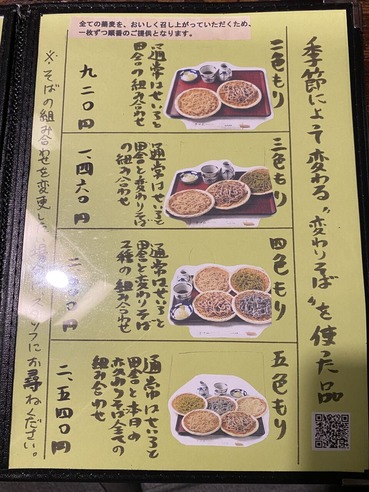 全ての蕎麦を、おいしく召し上がっていただくため、
一枚ずつ順番のご提供となります。
季節によって変わる"変わりそば"を使った品
二色もり
通常はせいろと
田舎の組み合わせ
九二〇円
三色もり
通常はせいろと
田舎と変わりそば
の組み合わせ
一、四六〇円
四色もり
通常はせいろと
田舎と変わりそば
2種の組み合わせ
五色もり
通常はせいろと
田舎と本日の
変わりそば全ての
組み合わせ
二、五四〇円
※そばの組み合わせを変更し
タッフにお尋ねください。